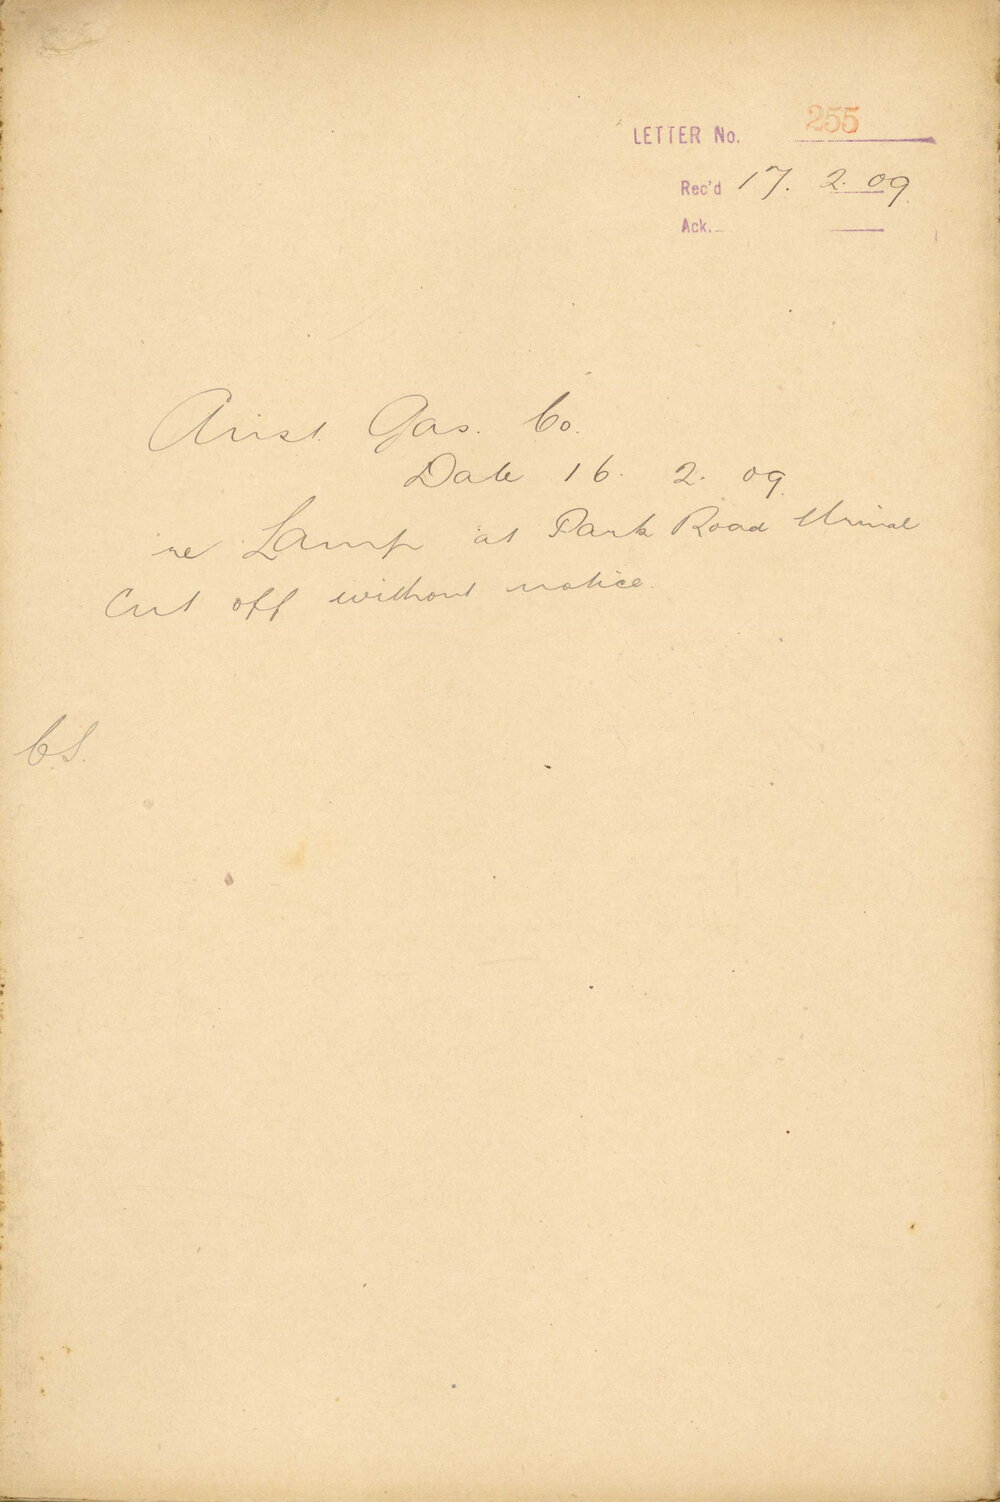 LETTER No. 255
Rec'd 17. 2. 09.
Ack.
Aust. Gas. Co.
Date 16. 2. 09.
re Lamp at Park Road Urinal
Cut off without notice.
C.S.